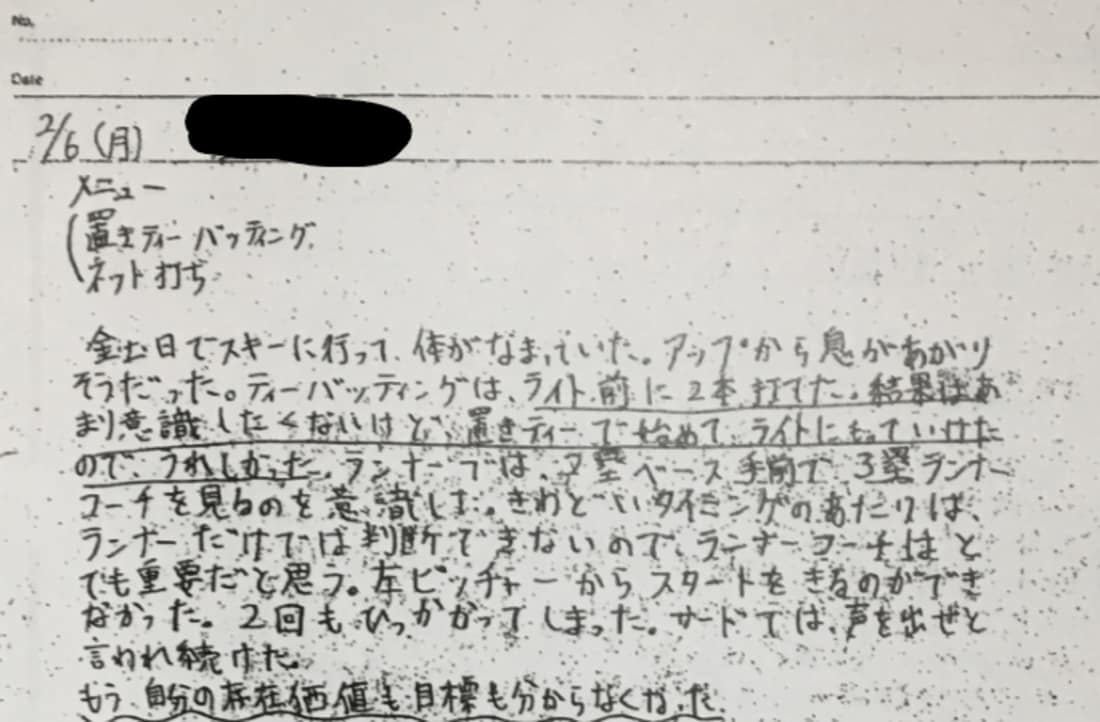 No.
Date
2/6 (月)
メニュー
置きティーバッティング
ネット打ち
金土日でスキーに行って、体がなまっていた。アップから息があがり
そうだった。ティーバッティングは、ライト前に2本打てた。結果はあ
まり意識したくないけど、置きティーで始めて、ライトにもっていけた
ので、うれしかった。ランナーでは、2塁ベース手前で、3塁ランナー
コーチを見るのを意識した。きわどいタイミングのあたりは、
ランナーだけでは判断できないので、ランナーコーチはと
ても重要だと思う。左ピッチャーからスタートをきるのができ
なかった。2回もひっかかってしまった。サードでは、声を出せと
言われ続けた。
もう、自分の存在価値も目標も分からなくなった。